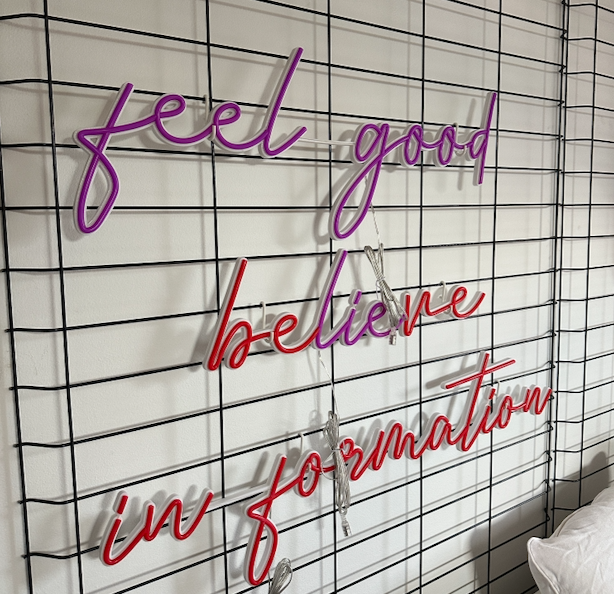 feel good
believe
in formation